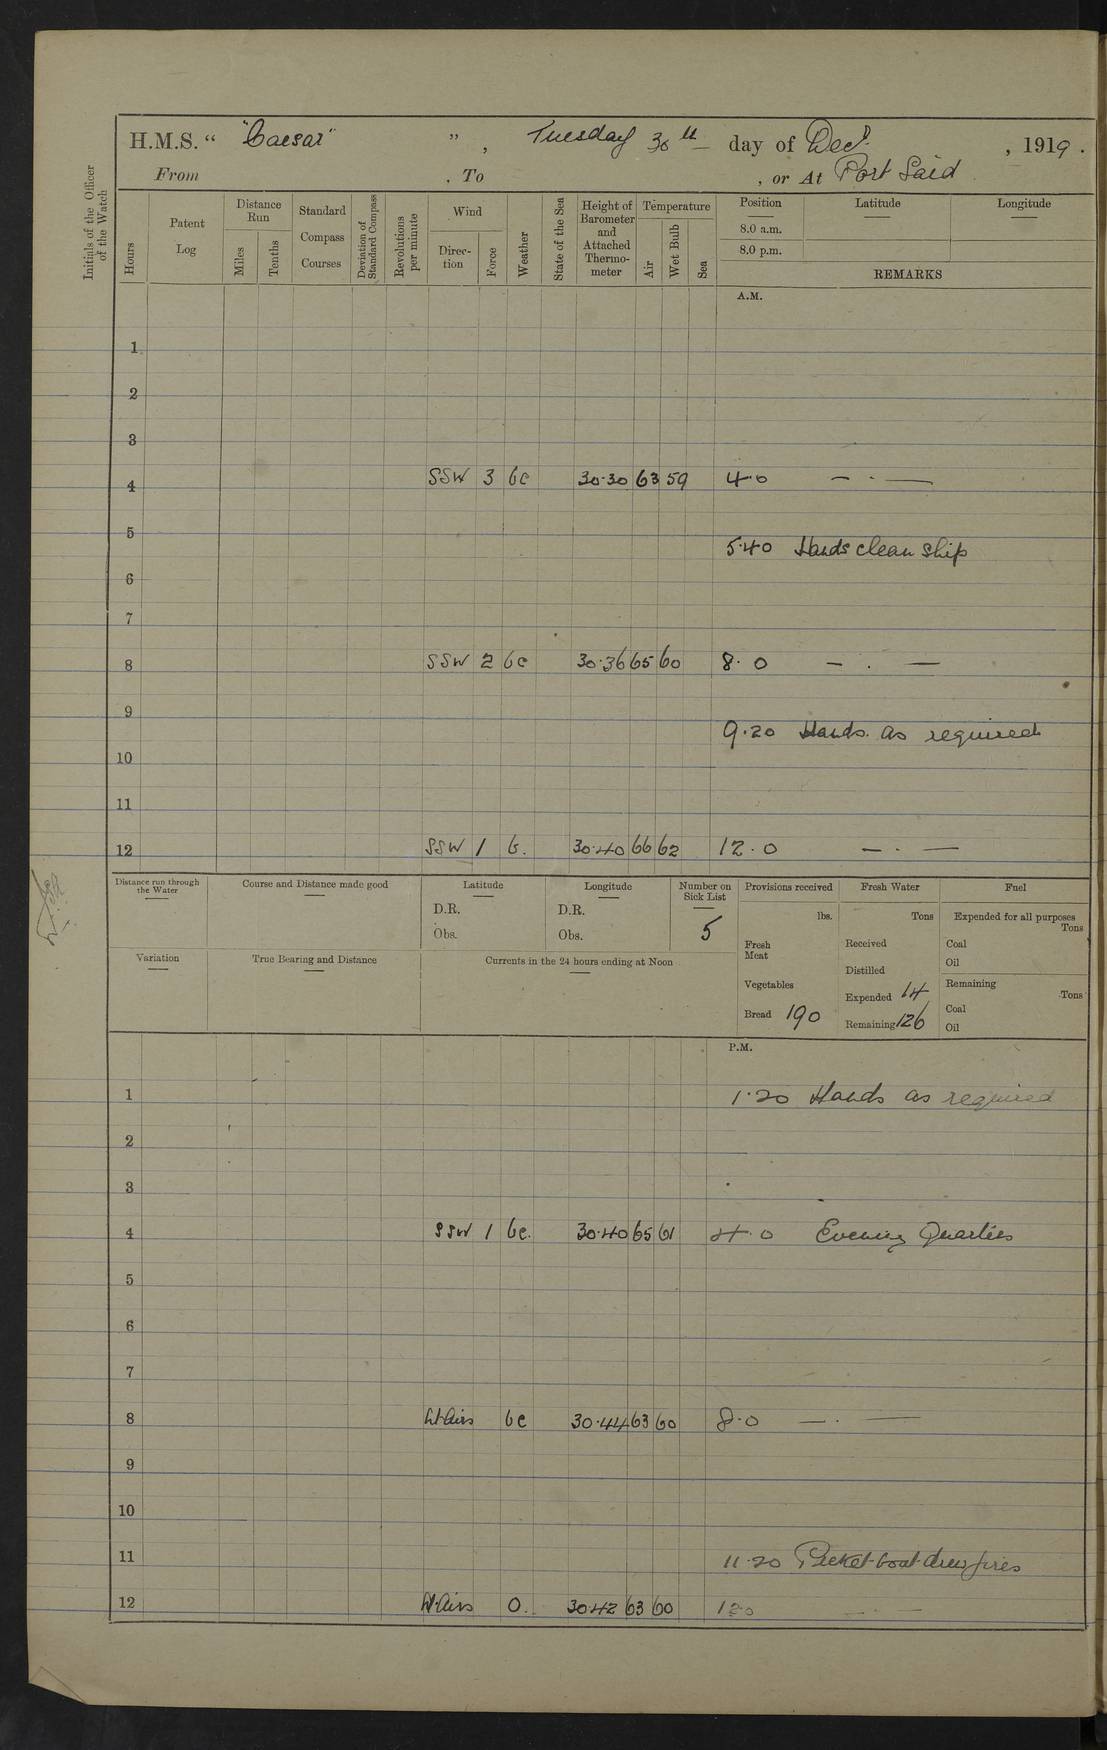 H.M.S. “ "Caesar" ” , Tuesday 30th day of Decr. , 1919 .
From . To , or At Port Said
Initials of the Officer of the Watch
Hours
Patent Log
Distance Run
Miles
Tenths
Standard Compass Courses
Deviation of Standard Compass
Revolutions per minute
Wind
Direc-tion
Force
Weather
State of the Sea
Height of Barometer and Attached Thermo-meter
Temperature
Air
Wet Bulb
Sea
Position Latitude Longitude
8.0 a.m.
8.0 p.m.
REMARKS
A.M.
1
2
3
4 SSW 3 bc 30.30 63 59 4.0 — . —
5
5.40 Hands clean ship
6
7
8 SSW 2 bc 30.36 65 60 8.0 — . —
9
9.20 Hands as required
10
11
12 SSW 1 b. 30.40 66 62 12.0 — . —
Distance run through the Water
Course and Distance made good
Latitude
D.R.
Obs.
Longitude
D.R.
Obs.
Number on Sick List
5
Variation
True Bearing and Distance
Currents in the 24 hours ending at Noon
Provisions received
lbs.
Fresh Meat
Vegetables
Bread 190
Fresh Water
Tons
Received
Distilled
Expended 14
Remaining 126
Fuel
Expended for all purposes
Tons
Coal
Oil
Remaining
Tons
Coal
Oil
P.M.
1 1.20 Hands as required
2
3
4 SSW 1 bc. 30.40 65 61 4.0 Evening Quarters
5
6
7
8 Lt Airs bc 30.44 63 60 8.0 — . —
9
10
11 11.20 Picket boat drew fires
12 Lt Airs O. 30.42 63 60 12.0 — . —